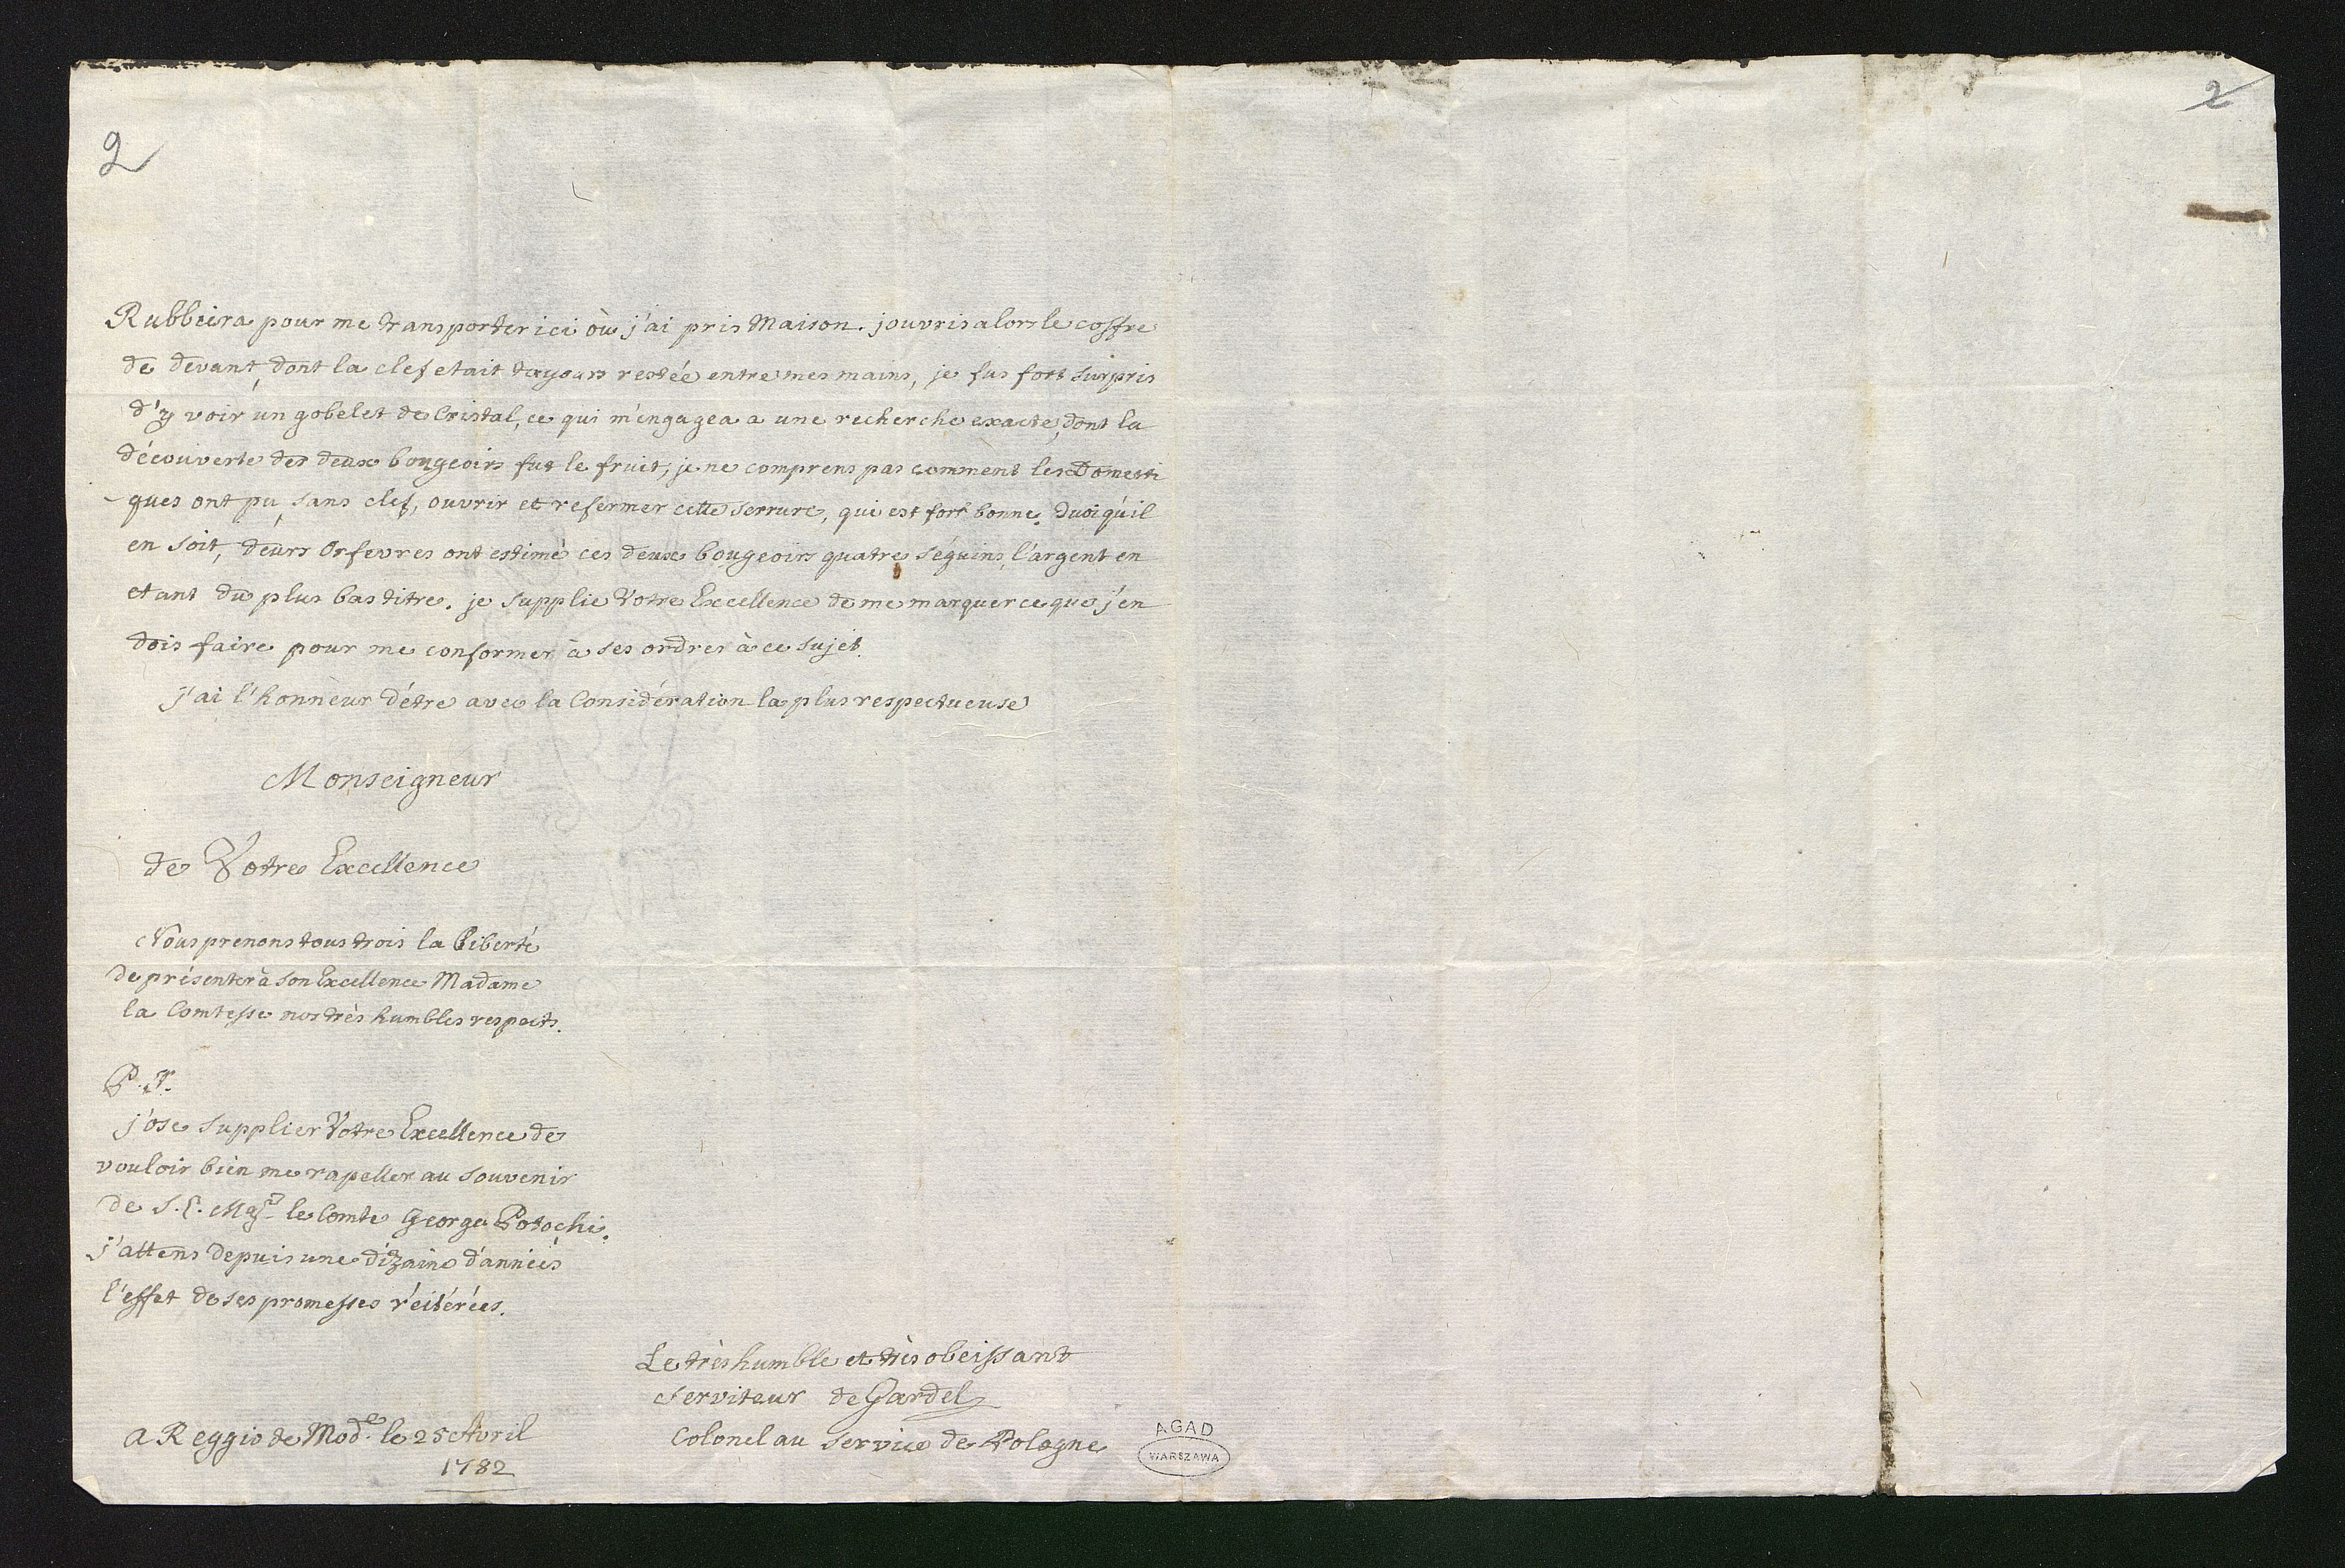 2
2
Rubbiera pour me transporter ici où j'ai pris Maison. j'ouvris alors le coffre
de devant, dont la clef etait toujours restée entre mes mains, je fus fort surpris
d'y voir un gobelet de Cristal, ce qui m'engagea a une recherche exacte, dont la
découverte des deux bougeoirs fut le fruit; je ne comprens pas comment les Domesti
ques ont pu, sans clef, ouvrir et refermer cette serrure, qui est fort bonne. Quoiqu'il
en soit, deux Orfevres ont estimé ces deux bougeoirs quatre séquins, l'argent en
etant du plus bas titre. je supplie Votre Excellence de me marquer ce que j'en
dois faire pour me conformer à ses ordres à ce sujet.
j'ai l'honneur d'étre avec la Considération la plus respectueuse
Monseigneur
de Votre Excellence
Nous prenons tous trois la liberté
de présenter à Son Excellence Madame
la Comtesse nos très humbles respects.
P.S.
j'ose supplier Votre Excellence de
vouloir bien me rapeller au souvenir
de S. E. Mgr le Comte George Potocki.
j'attens depuis une dizaine d'années
l'effet de ses promesses réitérées.
Le très humble et très obeissant
Serviteur de Gardel
Colonel au Service de Pologne
A Reggio de Mode. le 25 Avril
1782
AGAD
WARSZAWA